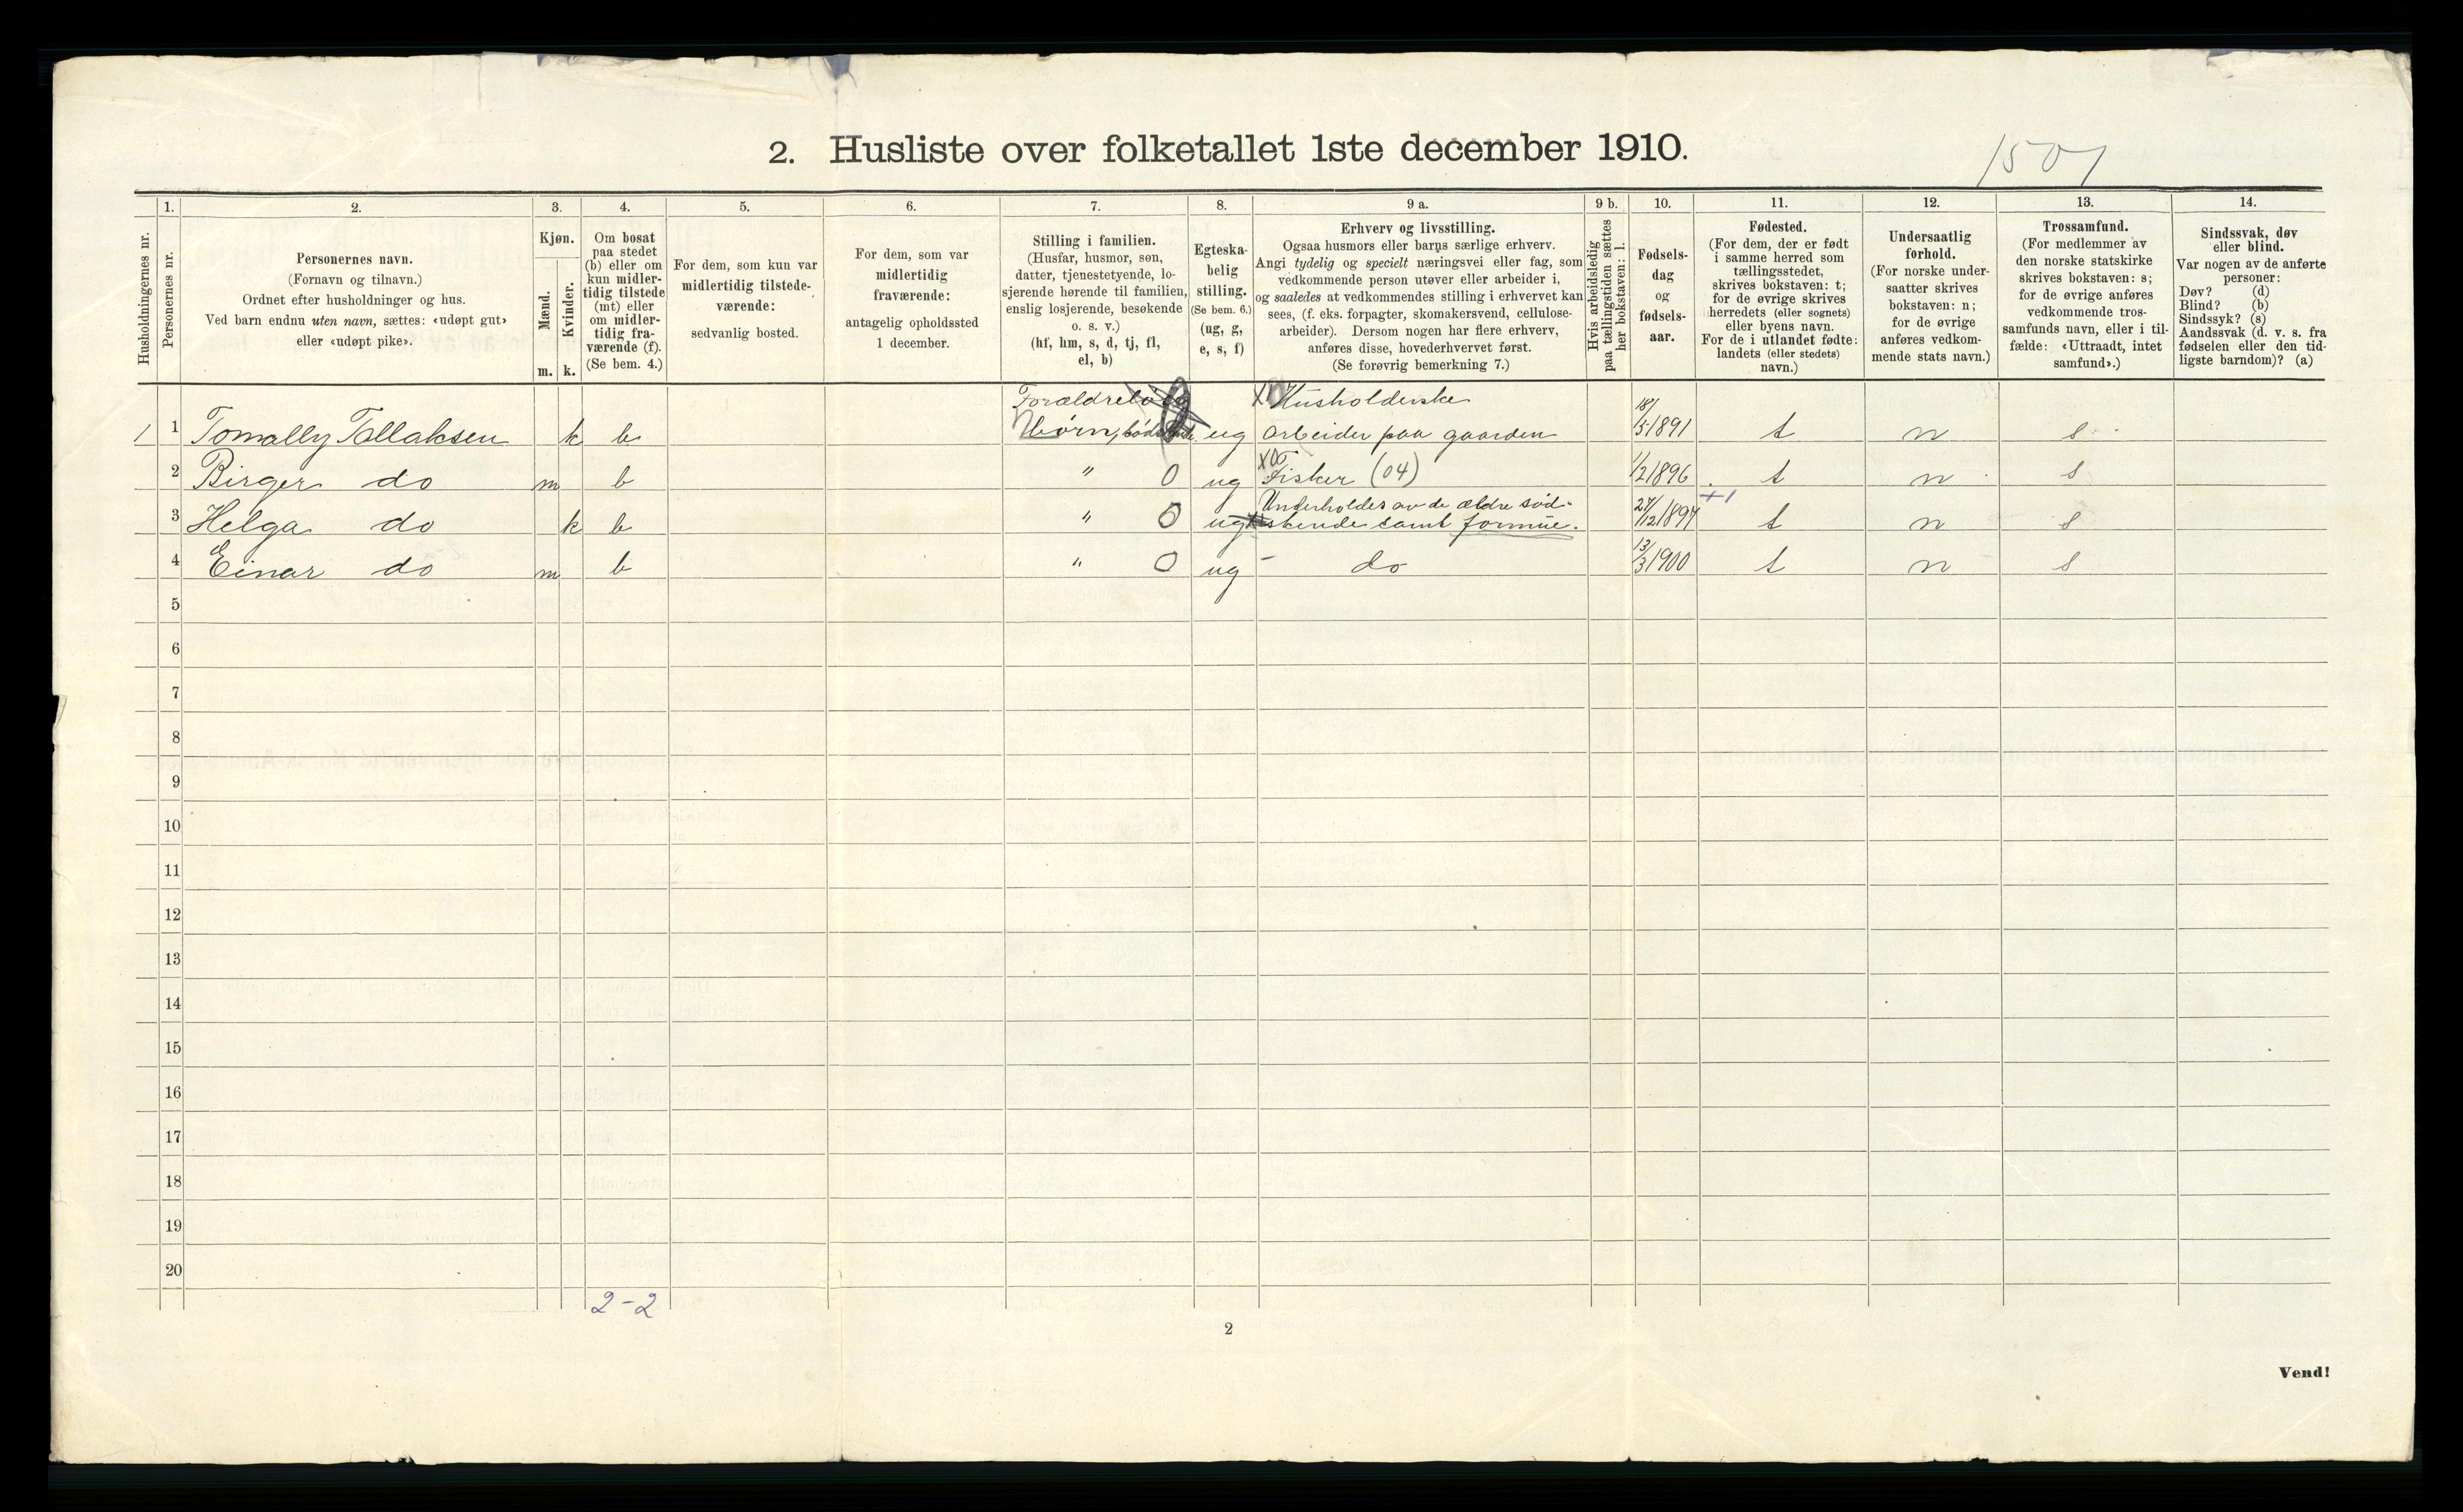 2. Husliste over folketallet 1ste december 1910.
1501
Husholdningernes nr.
1.
Personernes nr.
2.
Personernes navn.
(Fornavn og tilnavn.)
Ordnet efter husholdninger og hus.
Ved barn endnu uten navn, sættes: «udøpt gut»
eller «udøpt pike».
3.
Kjøn.
Mænd.
Kvinder.
m. k.
4.
Om bosat
paa stedet
(b) eller om
kun midler-
tidig tilstede
(mt) eller
om midler-
tidig fra-
værende (f).
(Se bem. 4.)
5.
For dem, som kun var
midlertidig tilstede-
værende:
sedvanlig bosted.
6.
For dem, som var
midlertidig
fraværende:
antagelig opholdssted
1 december.
7.
Stilling i familien.
(Husfar, husmor, søn,
datter, tjenestetyende, lo-
sjerende hørende til familien,
enslig losjerende, besøkende
o. s. v.)
(hf, hm, s, d, tj, fl,
el, b)
8.
Egteska-
belig
stilling.
(Se bem. 6.)
(ug, g,
e, s, f)
9 a.
Erhverv og livsstilling.
Ogsaa husmors eller barns særlige erhverv.
Angi tydelig og specielt næringsvei eller fag, som
vedkommende person utøver eller arbeider i,
og saaledes at vedkommendes stilling i erhvervet kan
sees, (f. eks. forpagter, skomakersvend, cellulose-
arbeider). Dersom nogen har flere erhverv,
anføres disse, hovederhvervet først.
(Se forøvrig bemerkning 7.)
9 b.
Hvis arbeidsledig
paa tællingstiden sættes
her bokstaven: l.
10.
Fødsels-
dag
og
fødsels-
aar.
11.
Fødested.
(For dem, der er født
i samme herred som
tællingsstedet,
skrives bokstaven: t;
for de øvrige skrives
herredets (eller sognets)
eller byens navn.
For de i utlandet fødte:
landets (eller stedets)
navn.)
12.
Undersaatlig
forhold.
(For norske under-
saatter skrives
bokstaven: n;
for de øvrige
anføres vedkom-
mende stats navn.)
13.
Trossamfund.
(For medlemmer av
den norske statskirke
skrives bokstaven: s;
for de øvrige anføres
vedkommende tros-
samfunds navn, eller i til-
fælde: «Uttraadt, intet
samfund».)
14.
Sindssvak, døv
eller blind.
Var nogen av de anførte
personer:
Døv? (d)
Blind? (b)
Sindssyk? (s)
Aandssvak (d. v. s. fra
fødselen eller den tid-
ligste barndom)? (a)
Forældreløse X0 Husholderske
1 1 Tomally Tollaksen k b Børn, ug arbeider paa gaarden 18/5 1891 t n s
2 Birger do m b " 0 ug X0 Fisker (04) 1/2 1896 t n s
Underholdes av de ældre sød-
3 Helga do k b " 0 ug skende samt formue. 27/12 1897 +1 t n s
4 Einar do m b " 0 ug - do 13/3 1900 t n s
5
6
7
8
9
10
11
12
13
14
15
16
17
18
19
20
2-2
2
Vend!